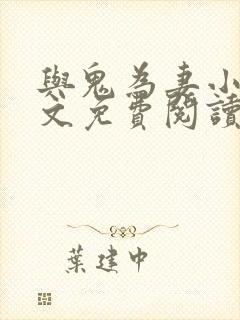 與鬼為妻小
文免費閱讀
葉建中